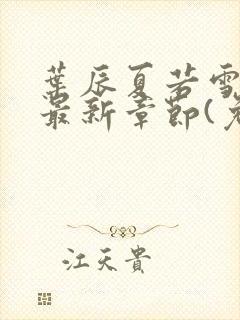 葉辰夏若雪
最新章節(
江天貴